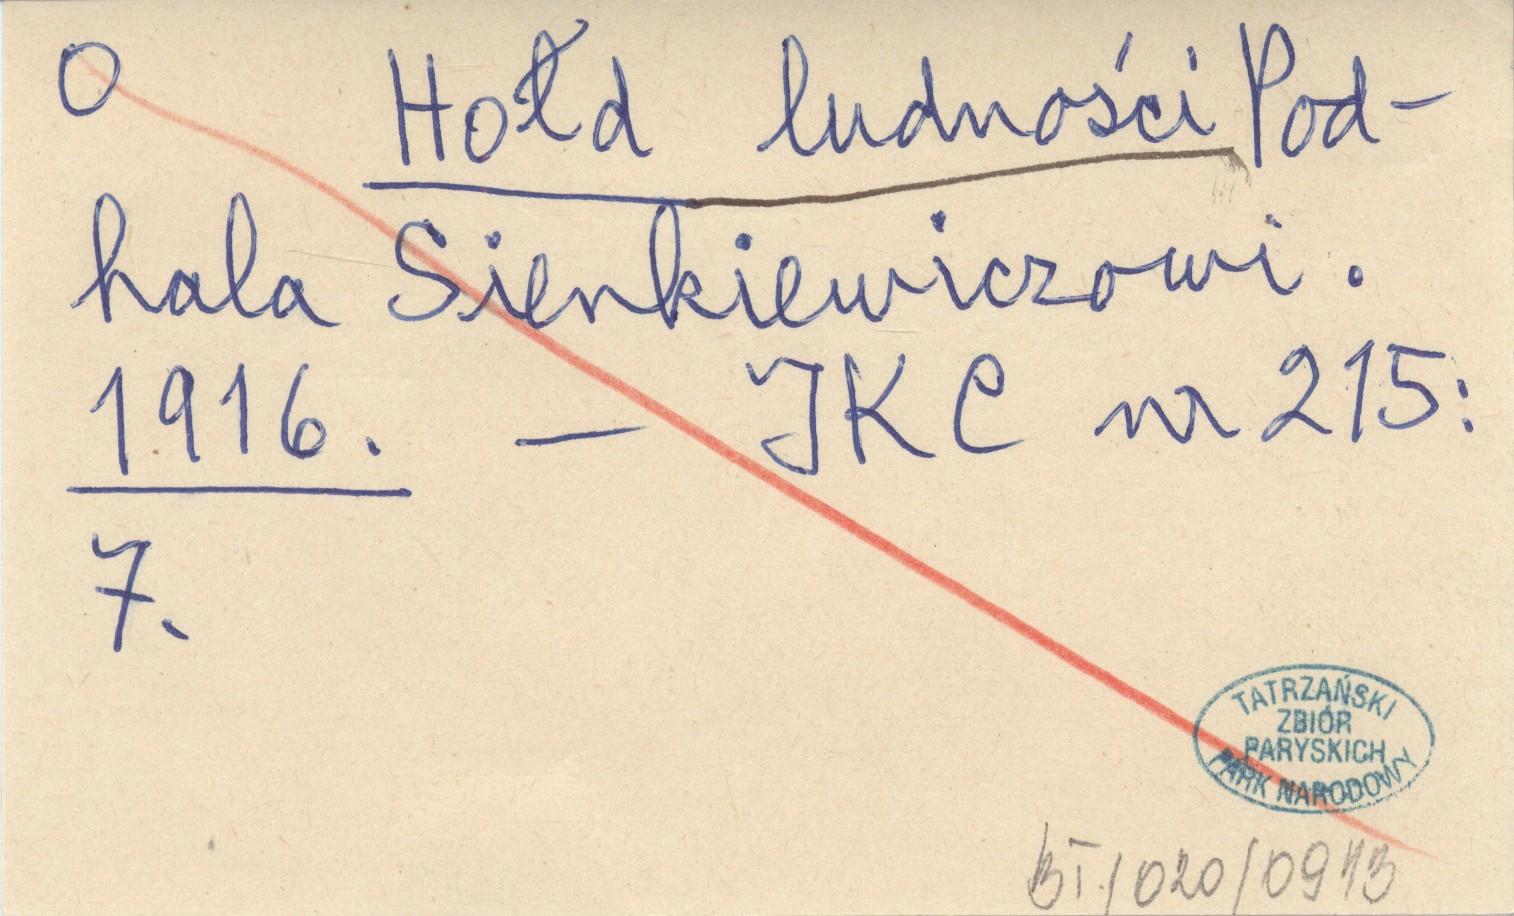 O Hołd ludności Pod-
hala Sienkiewiczowi.
1916. — IKC nr 215:
7.
TATRZAŃSKI
ZBIÓR
PARYSKICH
PARK NARODOWY
BT/020/0913